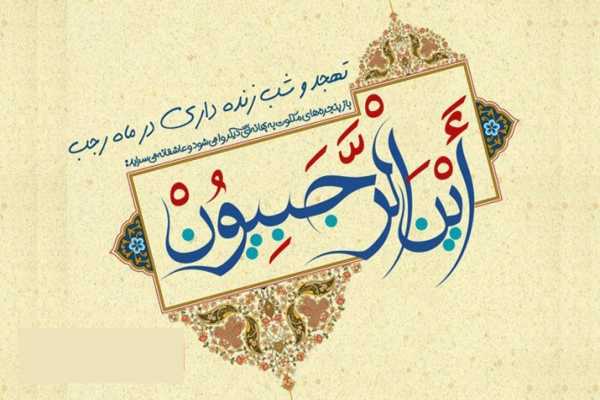 تهجد و شب زنده داری در ماه رجب
باز پنجره‌های ملکوت به بهانه‌ای دیگر وا می‌شود و عاشقانه می‌سراید:
أَیْنَ الرَّجَبِیُونْ